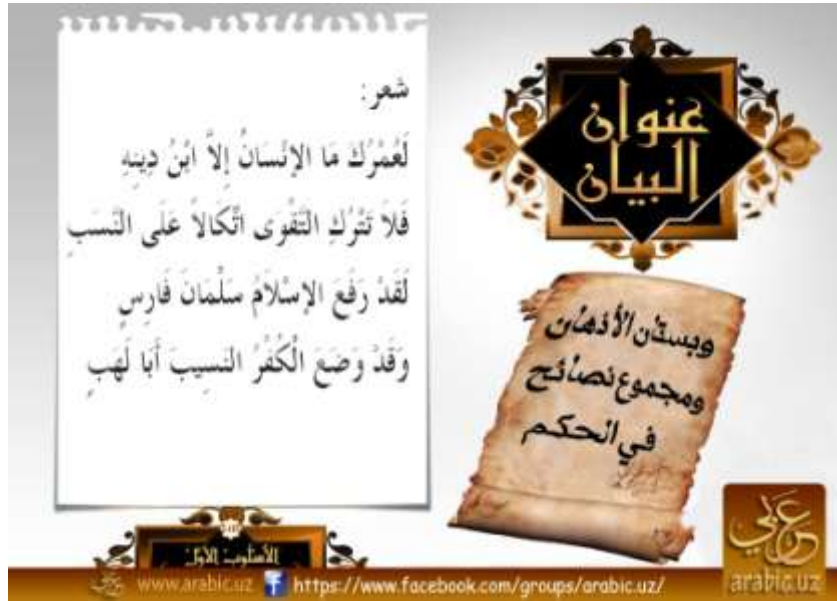 شعر:
لَعُمْرُكَ مَا الإنْسَانُ إِلاَّ ابْنُ دِينِهِ
فَلاَ تَتْرُكِ التَّقْوَى اتِّكَالاً عَلَى النَّسَبِ
لَقَدْ رَفَعَ الإسْلاَمُ سَلْمَانَ فَارِسٍ
وَقَدْ وَضَعَ الْكُفْرُ النَسِيبَ أَبَا لَهَبٍ
عنوان
البيان
وبستان الأذهان
ومجموع نصائح
في الحكم
الأسلوب الأول
www.arabic.uz
https://www.facebook.com/groups/arabic.uz/
عربي
arabic.uz